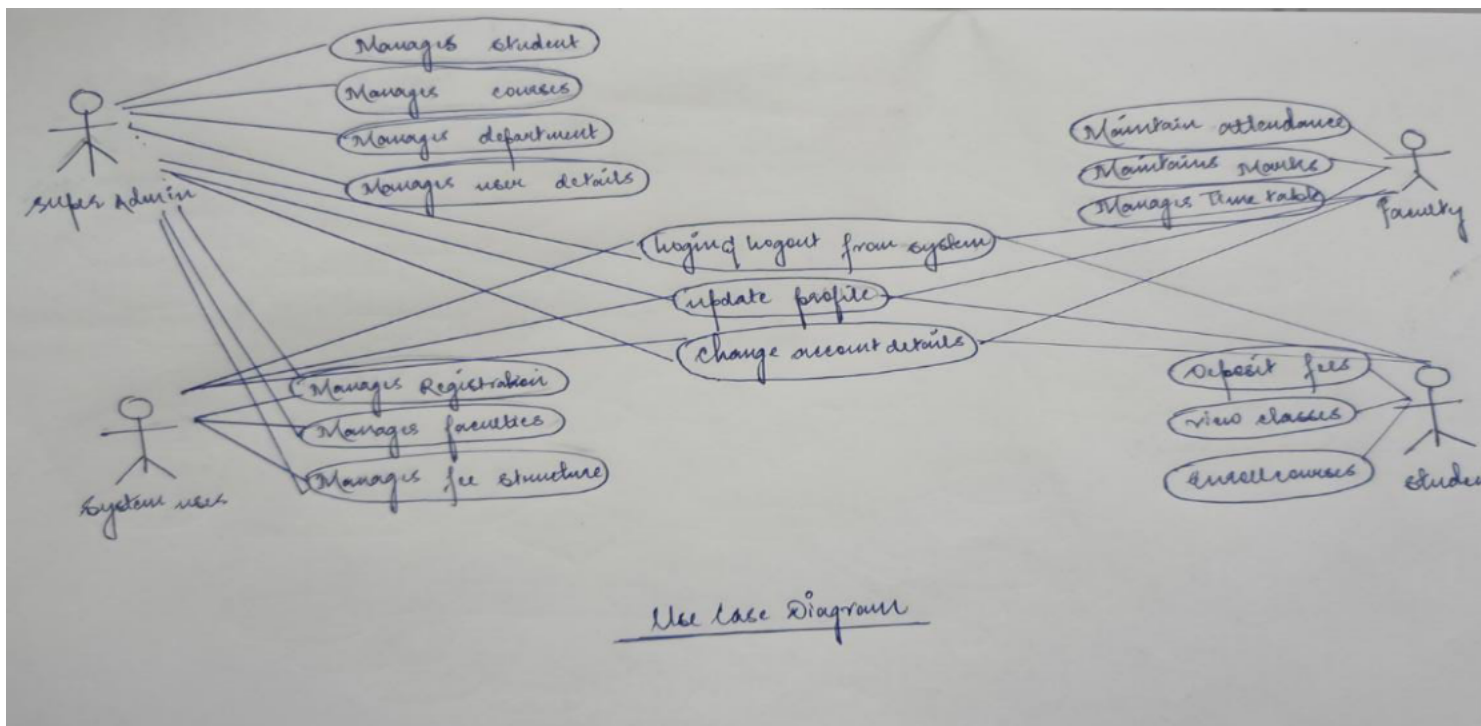 Manages student
Manages courses
Manages department
Manages user details
Super Admin
Maintain attendance
Maintains Marks
Manages Time table
faculty
Login & Logout from system
update profile
change account details
Manages Registration
Manages faculties
Manages fee structure
System user
Deposit fees
view classes
Enroll courses
Studen
Use Case Diagram